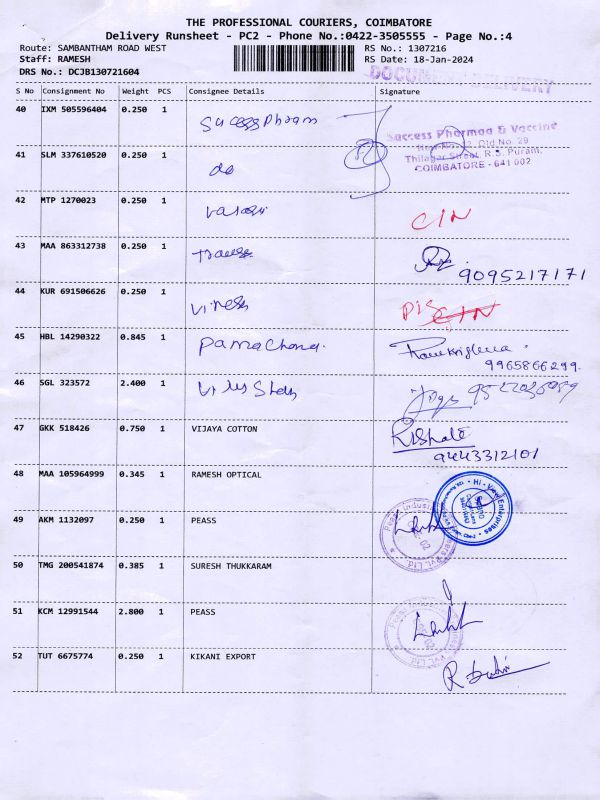 THE PROFESSIONAL COURIERS, COIMBATORE
Delivery Runsheet - PC2 - Phone No.:0422-3505555 - Page No.:4
Route: SAMBANTHAM ROAD WEST RS No.: 1307216
Staff: RAMESH RS Date: 18-Jan-2024
DRS No.: DCJB130721604
DOCUMENT DELIVERY
S No Consignment No Weight PCS Consignee Details Signature
40 IXM 505596404 0.250 1 Sucess Pharam
Success Pharmaa & Vaccine
Thilagar Street, R.S. Puram,
COIMBATORE - 641 002
41 SLM 337610520 0.250 1 do
42 MTP 1270023 0.250 1 CIN
43 MAA 863312738 0.250 1 9095217171
44 KUR 691506626 0.250 1 Viness CIN
45 HBL 14290322 0.845 1 Pamachand. Ramkrishna 9965866299.
46 SGL 323572 2.400 1
47 GKK 518426 0.750 1 VIJAYA COTTON 9443312101
48 MAA 105964999 0.345 1 RAMESH OPTICAL
Hi - View Enterprises
49 AKM 1132097 0.250 1 PEASS
50 TMG 200541874 0.385 1 SURESH THUKKARAM
51 KCM 12991544 2.800 1 PEASS
52 TUT 6675774 0.250 1 KIKANI EXPORT